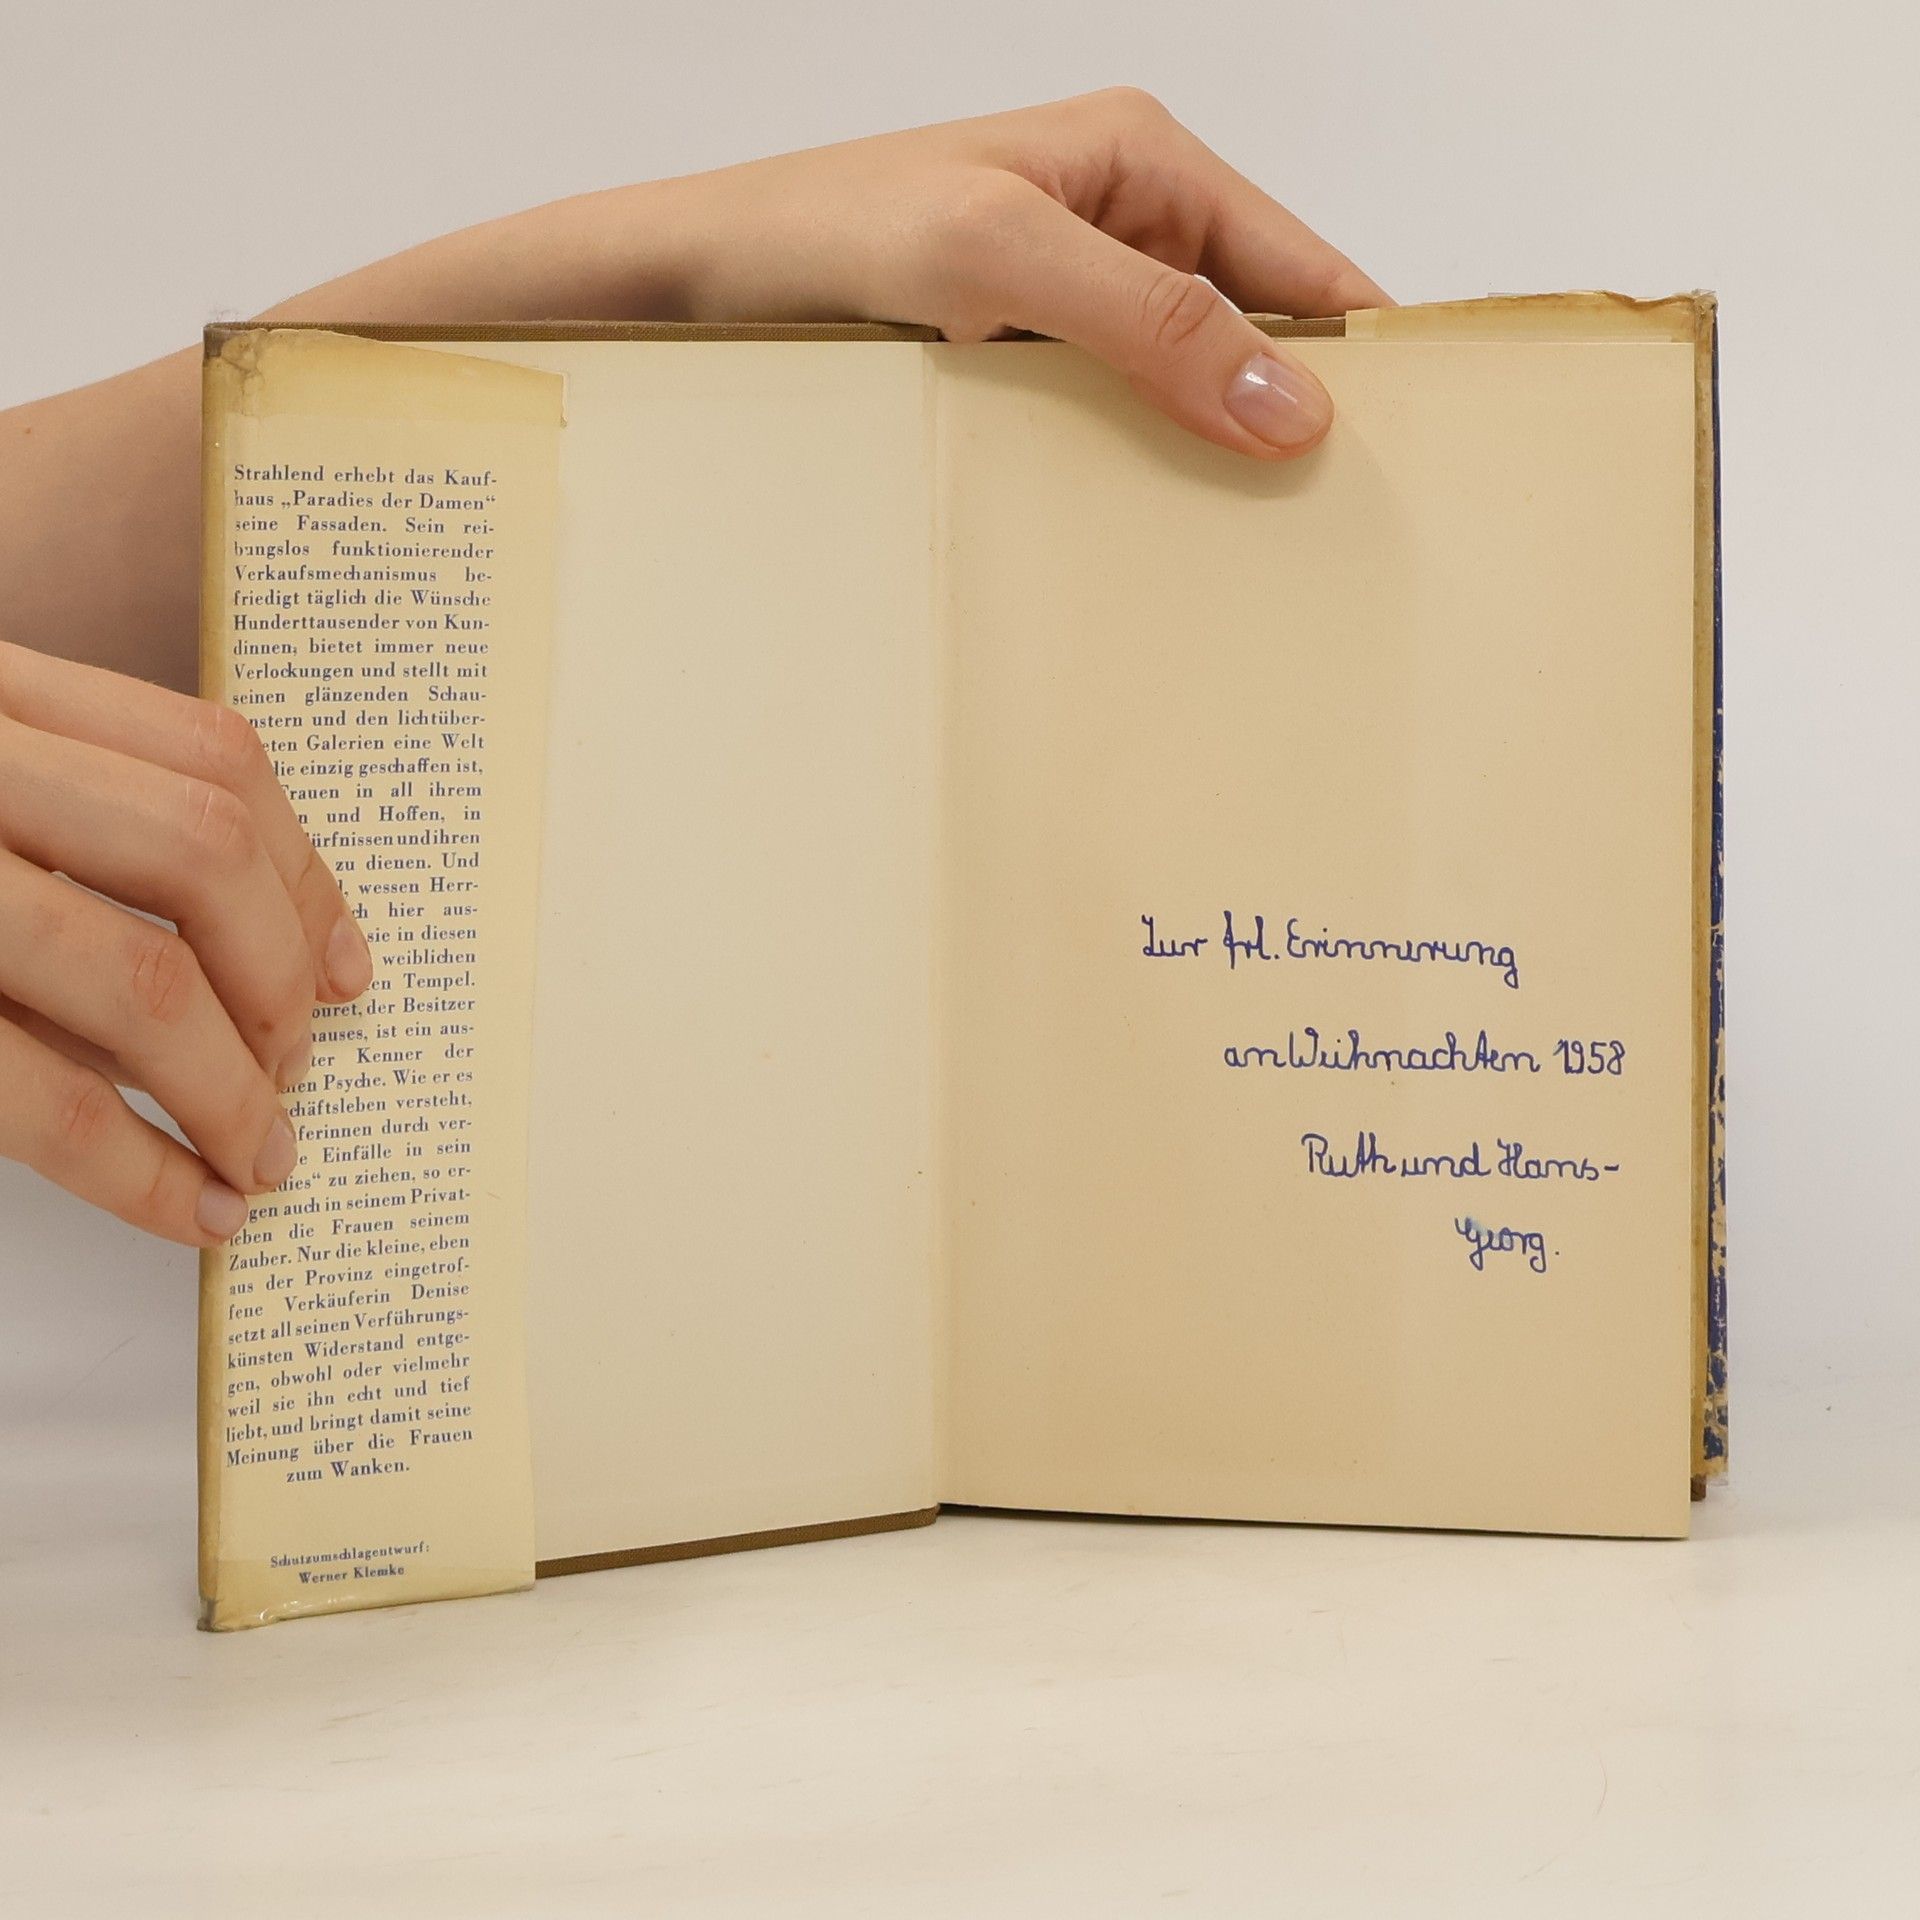 Strahlend erhebt das Kauf-
haus „Paradies der Damen“
seine Fassaden. Sein rei-
bungslos funktionierender
Verkaufsmechanismus be-
friedigt täglich die Wünsche
Hunderttausender von Kun-
dinnen, bietet immer neue
Verlockungen und stellt mit
seinen glänzenden Schau-
nstern und den lichtüber-
eten Galerien eine Welt
die einzig geschaffen ist,
Frauen in all ihrem
n und Hoffen, in
dürfnissen und ihren
zu dienen. Und
l, wessen Herr-
ch hier aus-
sie in diesen
weiblichen
en Tempel.
ouret, der Besitzer
hauses, ist ein aus-
ter Kenner der
hen Psyche. Wie er es
chäftsleben versteht,
ferinnen durch ver-
e Einfälle in sein
dies“ zu ziehen, so er-
gen auch in seinem Privat-
leben die Frauen seinem
Zauber. Nur die kleine, eben
aus der Provinz eingetrof-
fene Verkäuferin Denise
setzt all seinen Verführungs-
künsten Widerstand entge-
gen, obwohl oder vielmehr
weil sie ihn echt und tief
liebt, und bringt damit seine
Meinung über die Frauen
zum Wanken.
Schutzumschlagentwurf:
Werner Klemke
Zur frl. Erinnerung
an Weihnachten 1958
Ruth und Hans-
Georg.